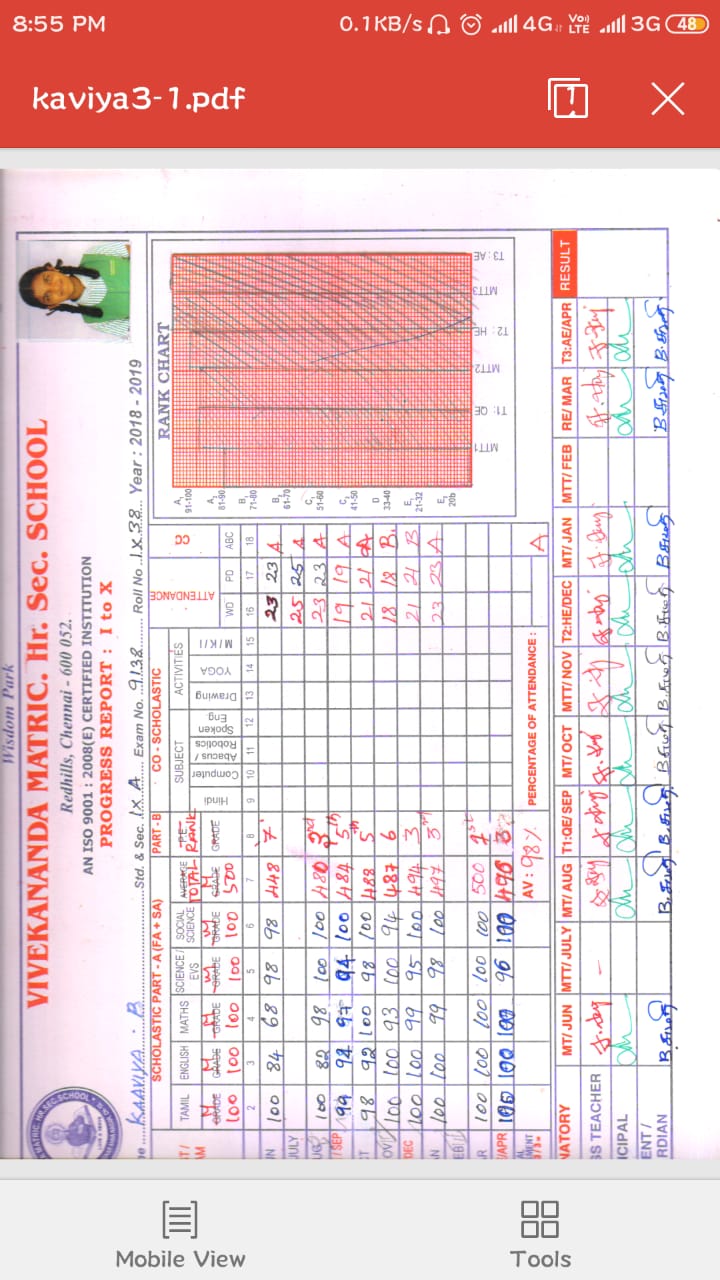 8:55 PM
0.1KB/s 4G Vo) LTE 3G 48
kaviya3-1.pdf
1
Wisdom Park
VIVEKANANDA MATRIC. Hr. Sec. SCHOOL
Redhills, Chennai - 600 052.
AN ISO 9001 : 2008(E) CERTIFIED INSTITUTION
PROGRESS REPORT : I to X
MATRIC. HR. SEC. SCHOOL
KAAVIYA . B Std. & Sec. IX A Exam No. 9138 Roll No. IX38 Year : 2018 - 2019
SCHOLASTIC PART - A (FA + SA) PART - B CO - SCHOLASTIC ATTENDANCE B
SUBJECT ACTIVITIES
TAMIL ENGLISH MATHS SCIENCE / EVS SOCIAL SCIENCE AVERAGE TOTAL RANK Hindi Computer Abacus / Robotics Spoken Eng. Drawing YOGA M / K / I WD PD ABC
GRADE GRADE GRADE GRADE GRADE GRADE GRADE
M M M M M M
100 100 100 100 100 500
2 3 4 5 6 7 8 9 10 11 12 13 14 15 16 17 18
100 84 68 98 98 448 7 23 23 A
JULY 25 25 A
100 82 98 100 100 480 3rd 23 23 A
/ SEP 99 94 97 94 100 484 5th 19 19 A
98 92 100 98 100 488 5 21 21 A
100 100 93 100 94 487 6 18 18 B
DEC 100 100 99 95 100 494 3 21 21 B
100 100 99 98 100 497 3rd 23 23 A
100 100 100 100 100 500 1st
/APR 100 100 100 96 100 496
AV : 98% PERCENTAGE OF ATTENDANCE : A
RANK CHART
A1 91-100
A2 81-90
B1 71-80
B2 61-70
C1 51-60
C2 41-50
D 33-40
E1 21-32
E2 20b
MTT1 T1: QE MTT2 T2: HE MTT3 T3: AE
NATORY MT/ JUN MTT/ JULY MT/ AUG T1:QE/SEP MT/ OCT MTT/ NOV T2:HE/DEC MT/ JAN MTT/ FEB RE/ MAR T3:AE/APR RESULT
SS TEACHER
CIPAL
ENT /
RDIAN
Mobile View
Tools